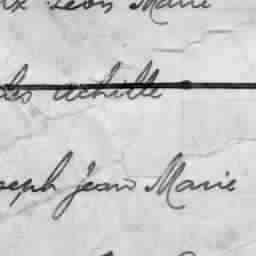 Léon Marie
les achille
seph Jean Marie